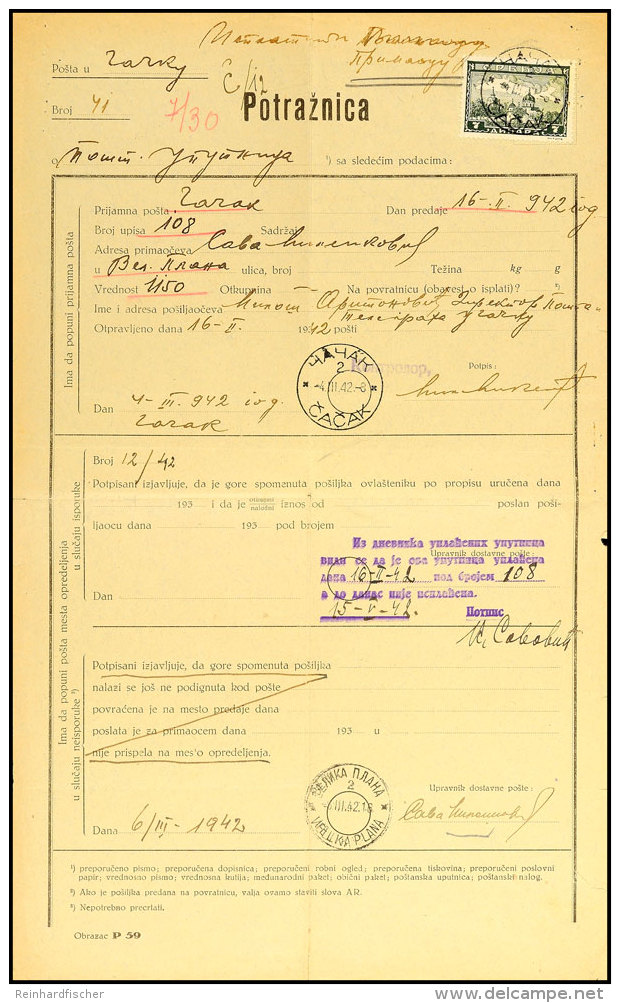 Pošta u Чачку
Č/12
Broj 41
7/30
Potražnica
СРБИЈА
ЧАЧАК
ČAČAK
7 ДИНАРА 7
o Пошт. упутница ¹) sa sledećim podacima:
Ima da popuni prijamna pošta
Prijamna pošta Чачак Dan predaje 16-II-942 год
Broj upisa 108 Sadržaj
Adresa primaočeva Сава
u Вел. Плана ulica, broj Težina kg g
Vrednost 1150 Otkupnina Na povratnicu (obavest o isplati)? ²)
Ime i adresa pošiljaočeva Милош Директор Поште
телеграфа у Чачку
Otpravljeno dana 16-II- 1942 pošti
Контролор,
Potpis:
ЧАЧАК
2
4.III.42.-8
ČAČAK
Dan 4-III-942 год.
Чачак
Ima da popuni pošta mesta opredeljenja
u slučaju isporuke
Broj 12/42
Potpisani izjavljuje, da je gore spomenuta pošiljka ovlašteniku po propisu uručena dana
193 i da je otkupni nalodni iznos od poslan poši-
ljaocu dana 193 pod brojem
Из дневника уплаћених упутница
Upravnik dostavne pošte:
види се да је ова упутница уплаћена
дана 16-II-42 под бројем 108
Dan
а до данас није исплаћена.
15-V-42. Потпис
u slučaju neisporuke ³)
Potpisani izjavljuje, da gore spomenuta pošiljka
nalazi se još ne podignuta kod pošte
povraćena je na mesto predaje dana
poslata je za primaocem dana 193 u
nije prispela na mesto opredeljenja.
ВЕЛИКА ПЛАНА
2
VELIKA PLANA
Upravnik dostavne pošte:
Dana 6/III-1942
¹) preporučeno pismo; preporučena dopisnica; preporučeni robni ogled; preporučena tiskovina; preporučeni poslovni
papir; vrednosno pismo; vrednosna kutija; međunarodni paket; obični paket; poštanska uputnica; poštanski nalog.
²) Ako je pošiljka predana na povratnicu, valja ovamo staviti slovo AR.
³) Nepotrebno precrtati.
Obrazac P 59
Reinhardfischer
delcampe.net